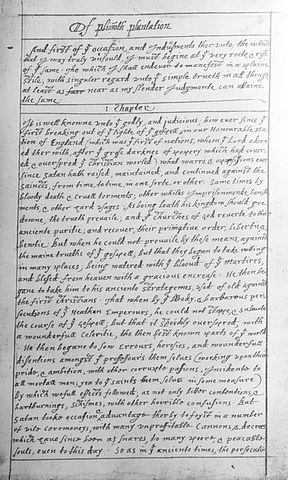 Of plimoth plantation
And first of yͤ occasion, and Indūsments ther unto; the which
that y may truly unfould, y must begine at yͤ very roote & rise
of yͤ same. The which y shall endevor to manefest in a plaine
stile; with singuler regard unto yͤ simple trueth in all things,
at least as near as my slender Judgmente can attaine
the same.
1 Chapter
It is well knowne unto yͤ godly, and judicious, how ever since yͤ
first breaking out of yͤ lighte of yͤ gospell, in our Honourable Na-
tion of England (which was yͤ first of nations, whom yͤ Lord adorn-
ed ther with, after yͭ grosse darknes of popery which had cover-
ed, & overspred yͤ christian worled) what warrs, & opposissions ever
since satan hath raised, maintained, and continued against the
saincts, from time, to time, in one sorte, or other. Some times by
bloody death & cruell torments, other whiles ymprisonments, banish-
ments, & other hard usages. As being loath his kingdom should goe
downe, the trueth prevaile; and yͤ churches of god reverte to their
anciente puritie; and recover, their primative order, libertie, &
bewtie. But when he could not prevaile by these means, against
the maine trueths of yͤ gospell, but that they began to take rooting
in many places; being watered with yͤ blooud of yͤ martires,
and blessed from heaven with a gracious encrease. He then be-
gane to take him to his anciente strategemes, used of old against
the first christians. That when by yͤ bloody, & barbarous per-
secutions of yͤ Heathen Emperours, he could not stoppe, & subverte
the course of yͤ gospell; but that it speedily overspred, with
a wounderfull celeritie, the then best known parts of yͤ world.
He then begane to sow errours, heresies, and wounderfull
dissentions amongst yͤ professours them selves (working upon their
pride, & ambition, with other corrupte passions, yncidente to
all mortall men; yea to saints them selves in some measure)
by which wofull effects followed; as not only bitter contentions, &
hartburnings, schismes, with other horrible confusions. But
satan tooke occasion & advantage therby to foyst in a number
of vile ceremoneys, with many unproffitable Cannons, & decrees
which have since been as snares, to many poore, & peaceable
souls, even to this day. So as in yͤ anciente times, the persecutio